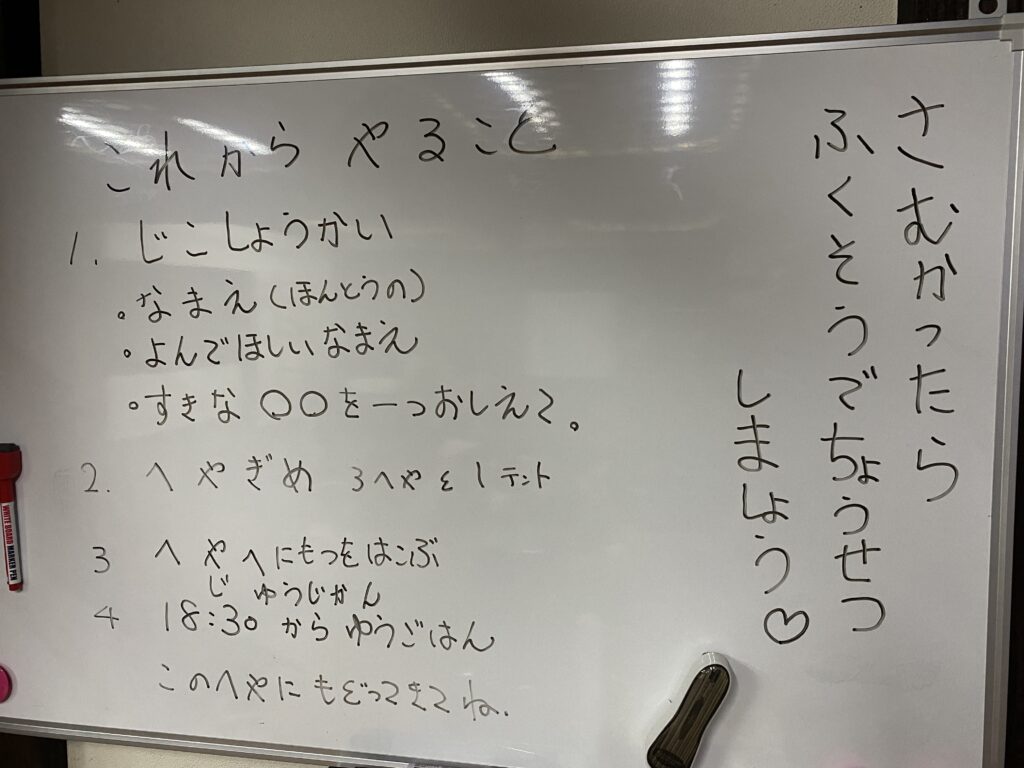 これから やること
1. じこしょうかい
・なまえ(ほんとうの)
・よんでほしいなまえ
・すきな 〇〇を一つおしえて。
2. へやぎめ 3へやと1テント
3 へやへにもつをはこぶ
じゆうじかん
4 18:30からゆうごはん
このへやにもどってきてね.
さむかったら
ふくそうでちょうせつ
しましょう♡
WHITE BOARD MARKER PEN